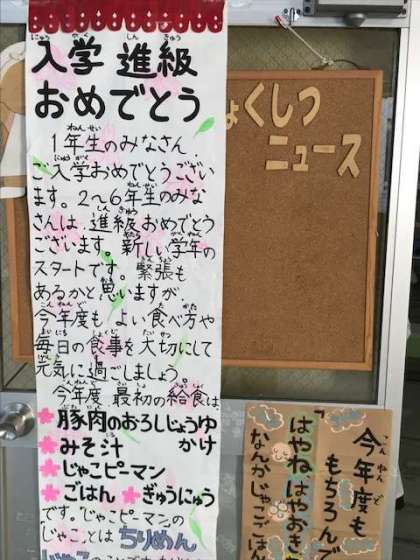 入学 進級
おめでとう
1年生のみなさん、
ご入学おめでとうござい
ます。2~6年生のみな
さんは、進級おめでとう
ございます。新しい学年の
スタートです。緊張も
あるかと思いますが、
今年度も、よい食べ方や
毎日の食事を大切にして
元気に過ごしましょう。
今年度、最初の給食は、
豚肉のおろしじょうゆ
かけ
みそ汁
じゃこピーマン
ごはん ぎゅうにゅう
です。「じゃこピーマン」の
「じゃこ」とは ちりめん
ょくしつ
ニュース
今年度も
もちろん
「はやねはやおき
なんかじゃこごはん